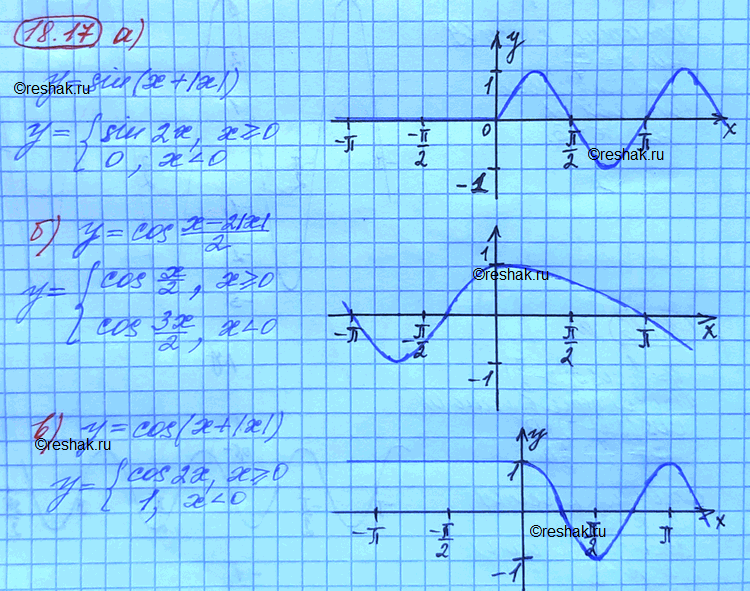 18.17 а)
y = sin(x+|x|)
©reshak.ru
y = { sin 2x, x ≥ 0
0, x < 0
y
1
-π
-π/2
0
π/2
π
x
©reshak.ru
-1
б) y = cos (x-2|x|)/2
y = { cos x/2, x ≥ 0
cos 3x/2, x < 0
1
©reshak.ru
-π
-π/2
π/2
π
x
-1
в) y = cos(x+|x|)
©reshak.ru
y = { cos 2x, x ≥ 0
1, x < 0
y
1
-π
-π/2
©reshak.ru
π/2
π
x
-1